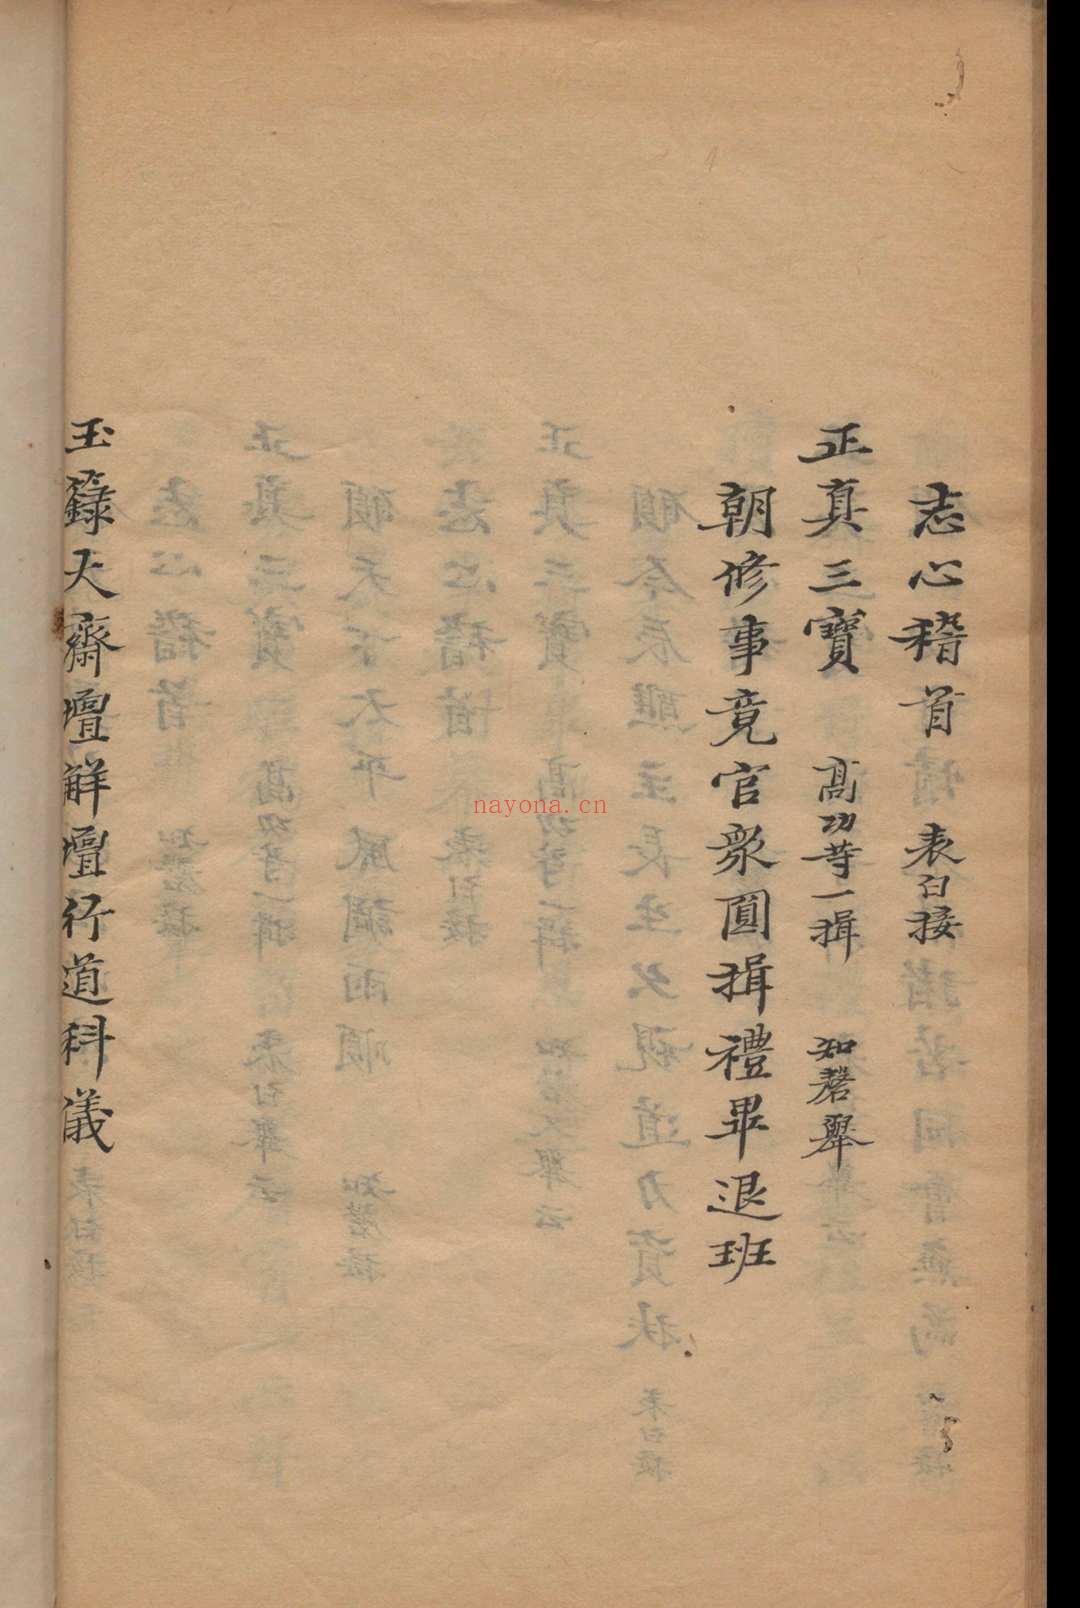 志心稽首 表白接
正真三寶 高功等一揖 知磬舉
朝修事竟官眾圓揖禮畢退班
玉籙大齋壇解壇行道科儀
nayona.cn